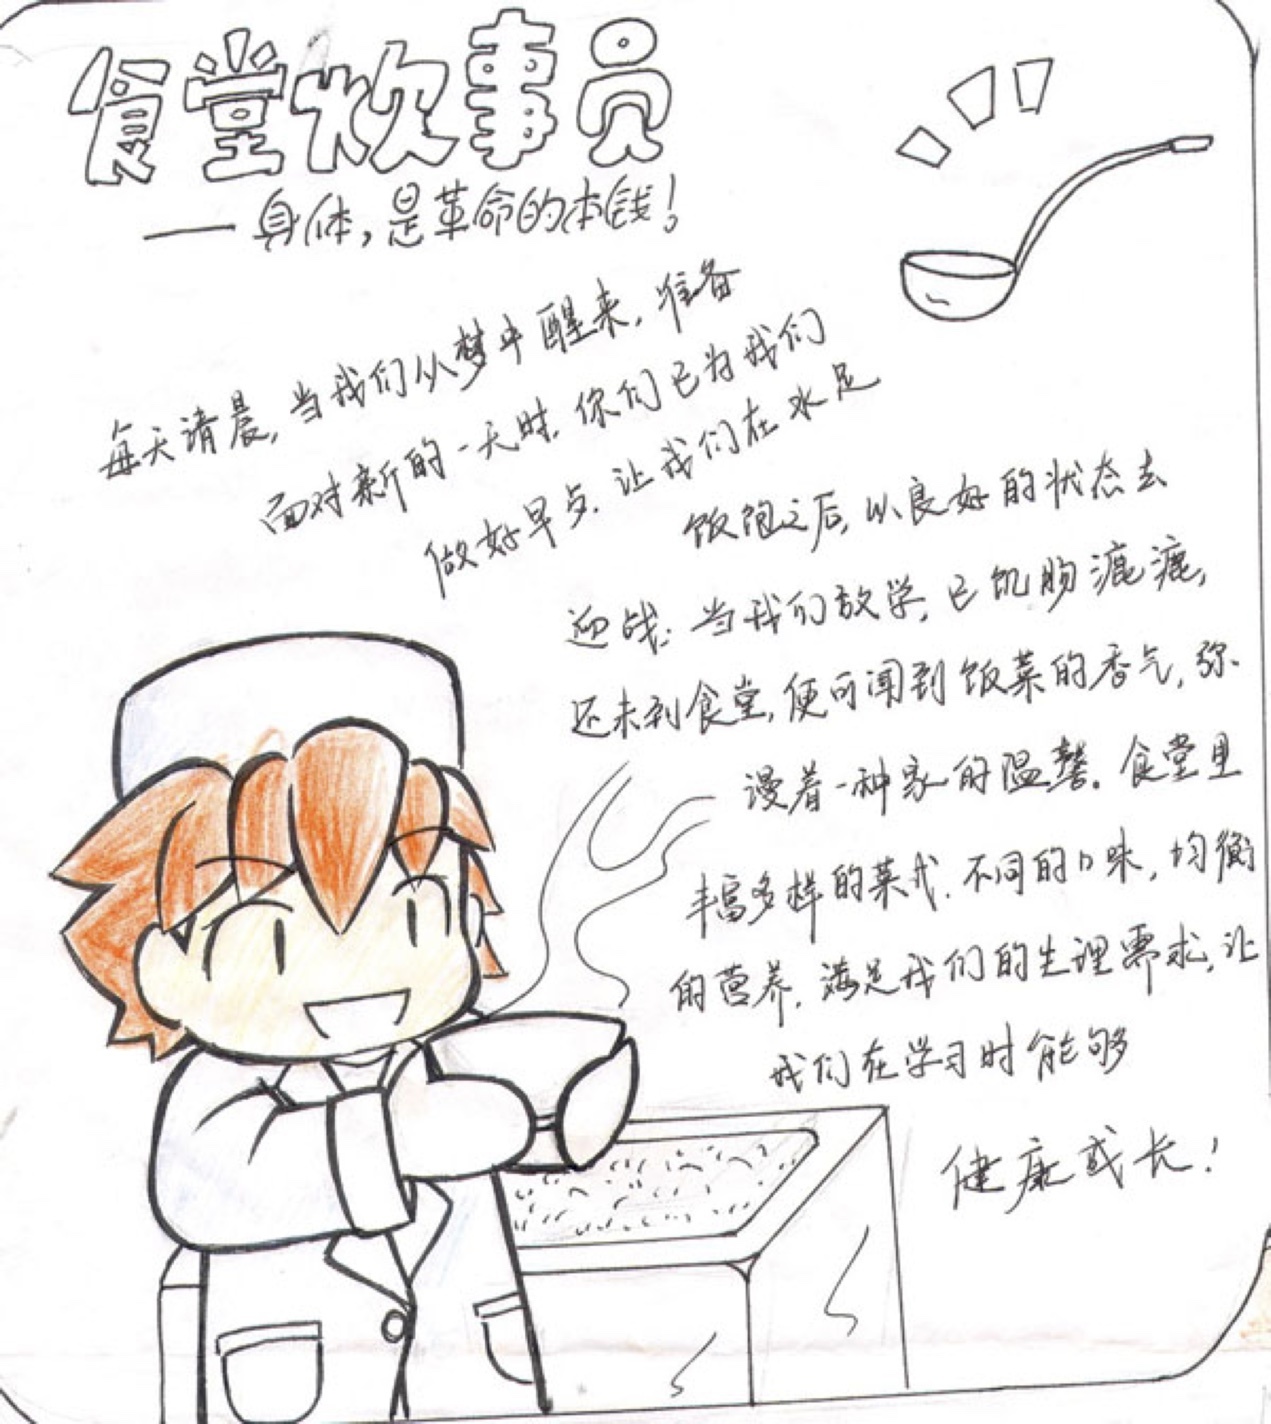 食堂炊事员
——身体,是革命的本钱!
每天清晨,当我们从梦中醒来,准备
面对新的一天时,你们已为我们
做好早点,让我们在水足
饭饱之后,以良好的状态去
迎战;当我们放学,已饥肠漉漉,
还未到食堂,便可闻到饭菜的香气,弥
漫着一种家的温馨。食堂里
丰富多样的菜式,不同的口味,均衡
的营养,满足我们的生理需求,让
我们在学习时能够
健康成长!